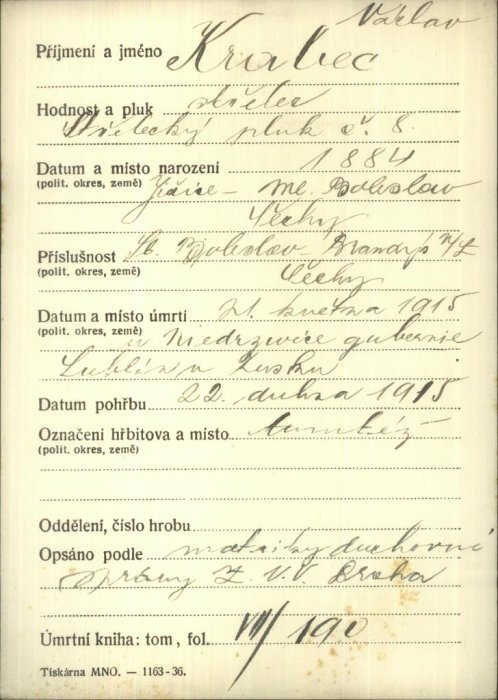 Václav
Příjmení a jméno Krabec
Hodnost a pluk střelec
Střelecký pluk č. 8.
Datum a místo narození 1884
(polit. okres, země) Jiřice - Ml. Boleslav
Čechy
Příslušnost St. Boleslav - Brandýs n/L
(polit. okres, země) Čechy
Datum a místo úmrtí 21. května 1915
(polit. okres, země) u Niedrzwice gubernie
Lublin v Rusku
Datum pohřbu 22. dubna 1915
Označení hřbitova a místo tamtéž
(polit. okres, země)
Oddělení, číslo hrobu
Opsáno podle matriky duchovní
správy Z. V. V. Praha
Úmrtní kniha: tom, fol. VIII/190
Tiskárna MNO. — 1163-36.